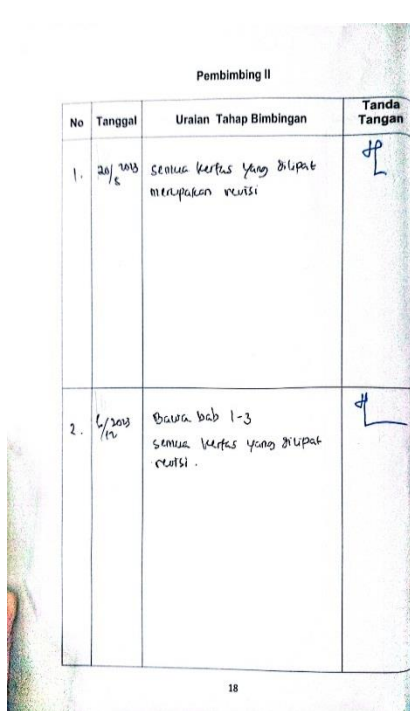 Pembimbing II
No Tanggal Uraian Tahap Bimbingan Tanda Tangan
1. semua kertas yang dilipat
merupakan revisi
2. Bawa bab 1-3
semua kertas yang dilipat
revisi.
18